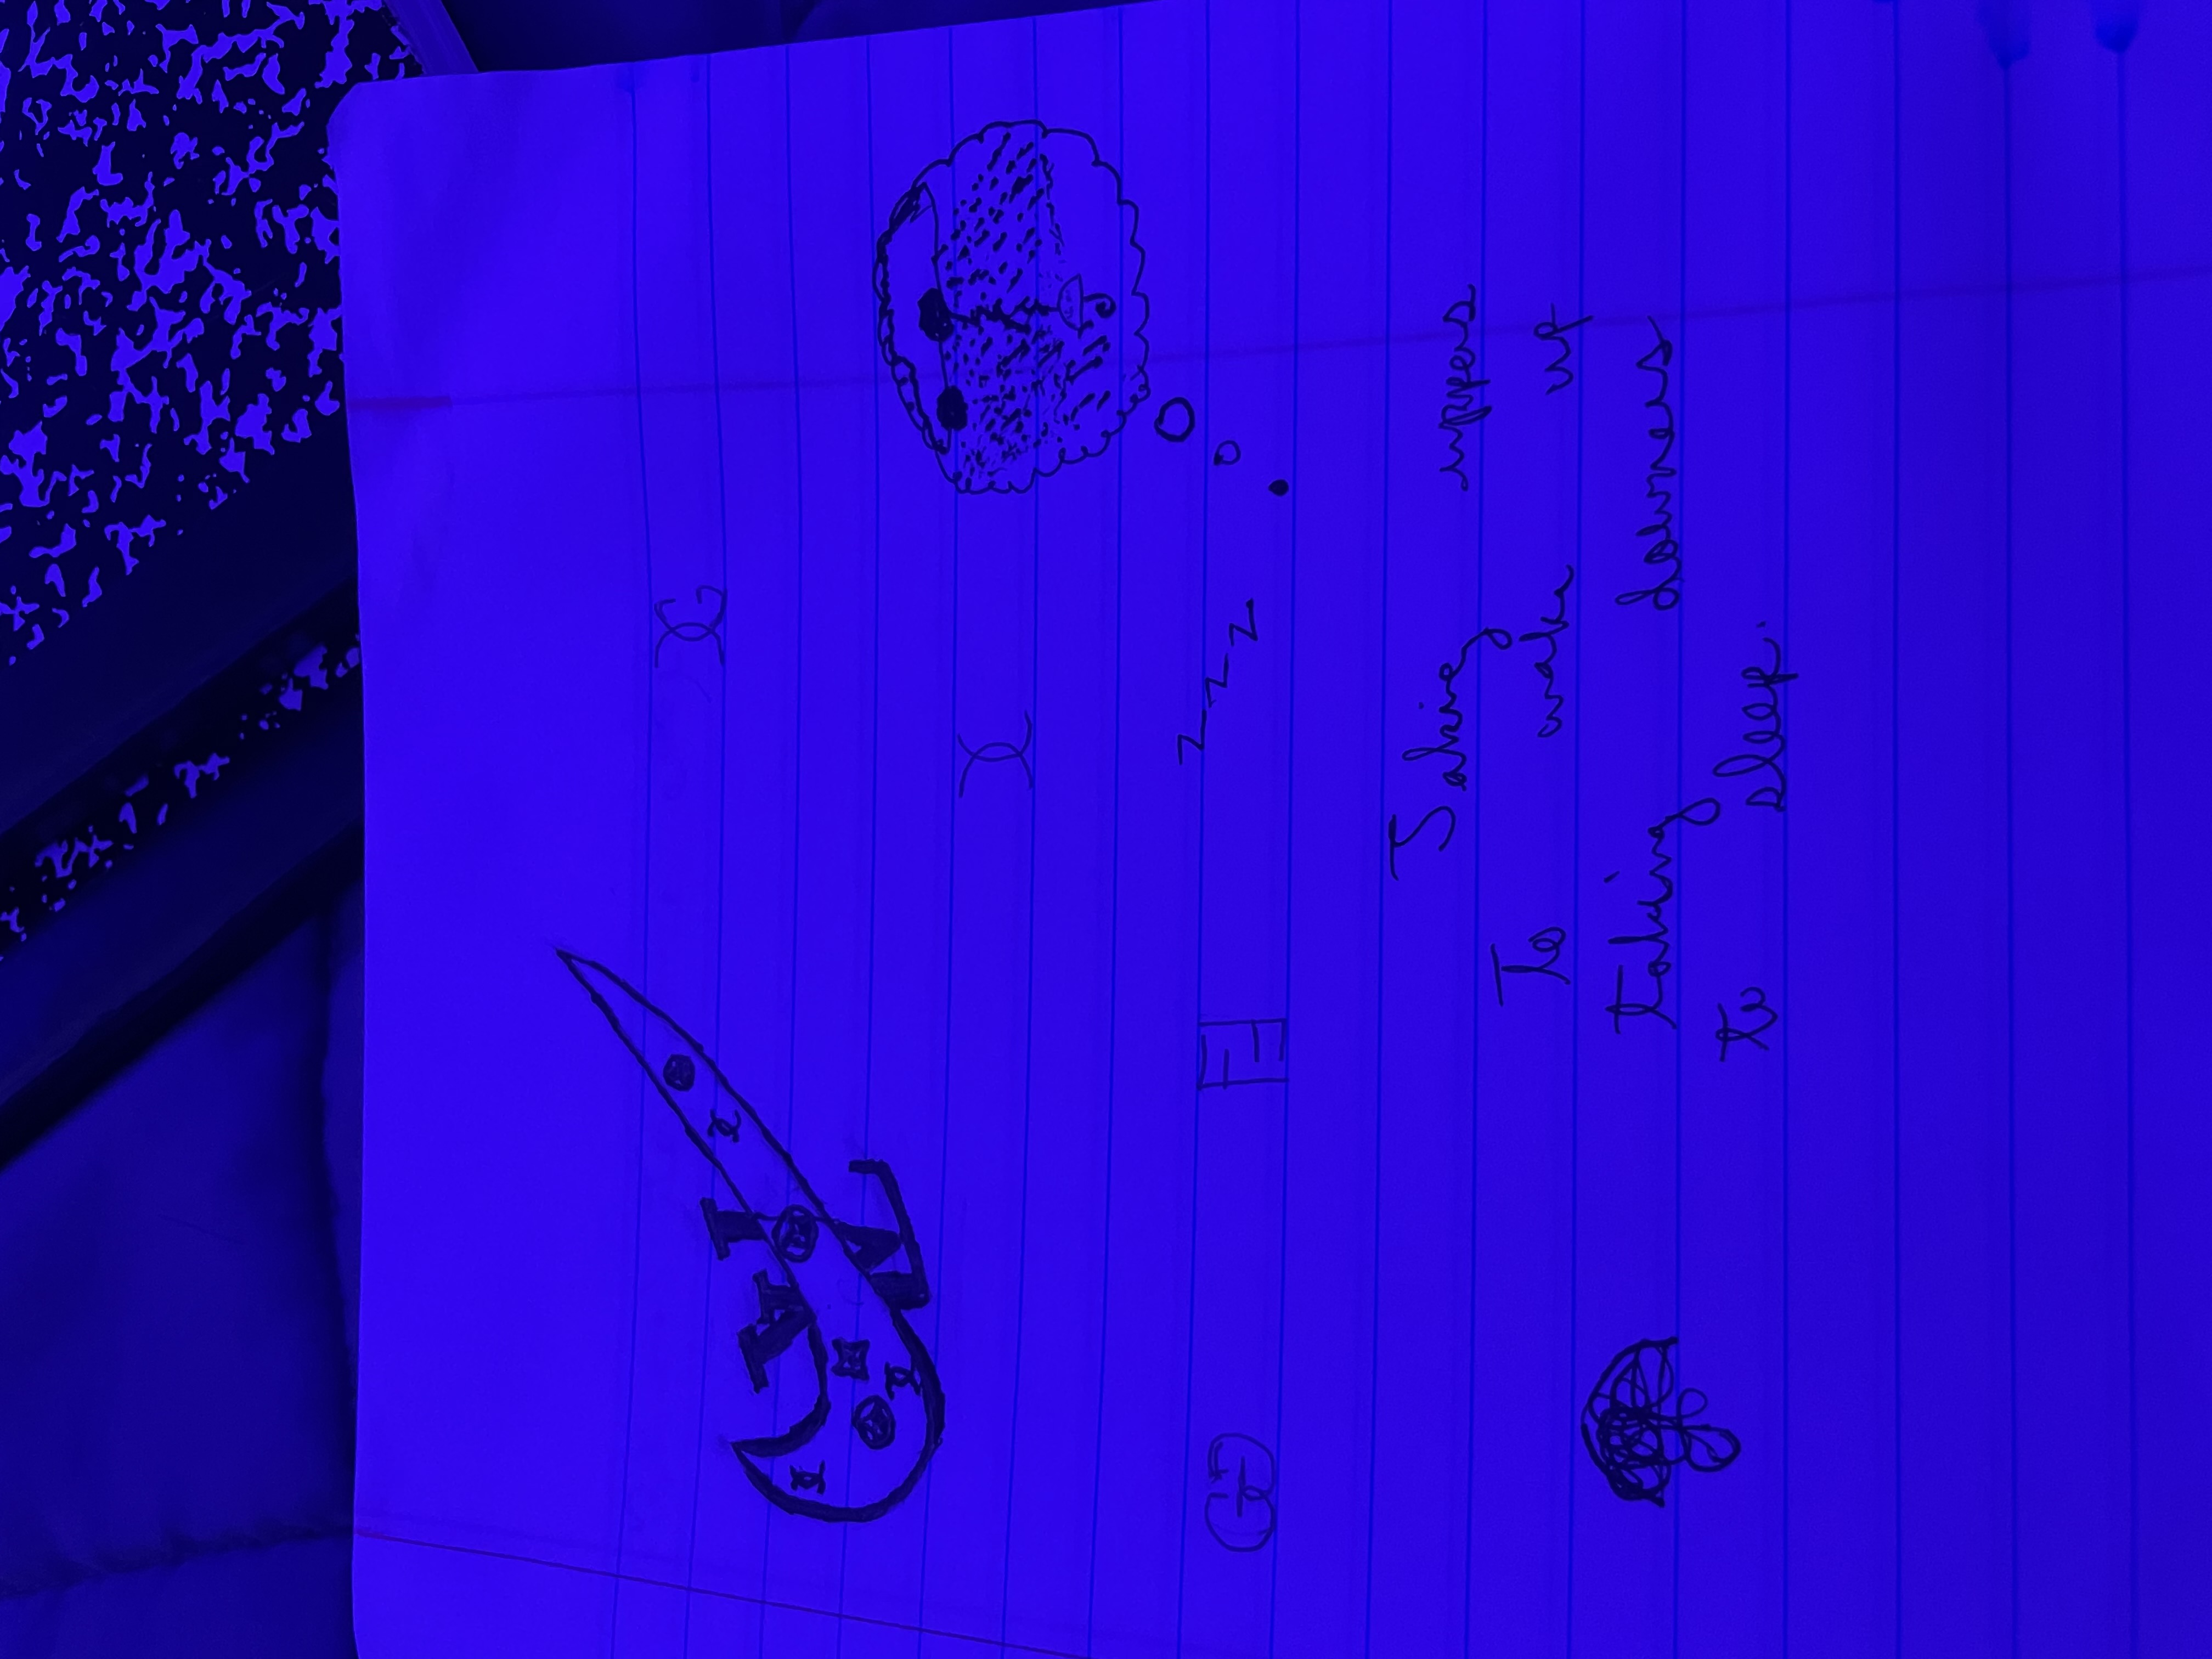 z z z
Taking uppers
To wake up
taking downers
to sleep.